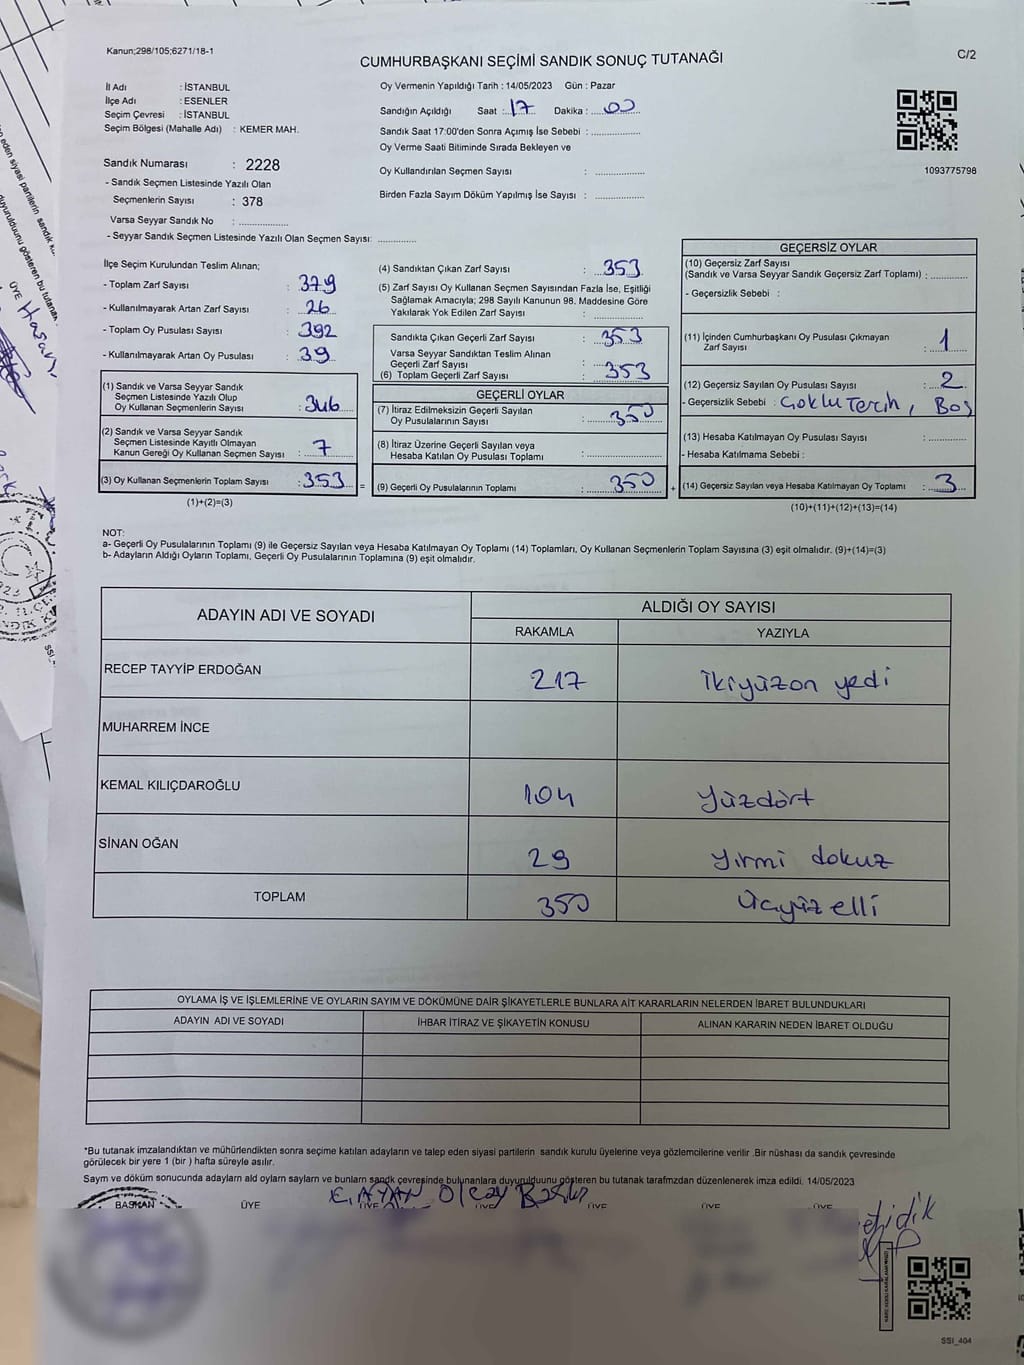 Kanun;298/105;6271/18-1
C/2
CUMHURBAŞKANI SEÇİMİ SANDIK SONUÇ TUTANAĞI
İl Adı : İSTANBUL
İlçe Adı : ESENLER
Seçim Çevresi : İSTANBUL
Seçim Bölgesi (Mahalle Adı) : KEMER MAH.
Sandık Numarası : 2228
- Sandık Seçmen Listesinde Yazılı Olan
Seçmenlerin Sayısı : 378
Varsa Seyyar Sandık No : ..............
- Seyyar Sandık Seçmen Listesinde Yazılı Olan Seçmen Sayısı: ...........
Oy Vermenin Yapıldığı Tarih : 14/05/2023 Gün : Pazar
Sandığın Açıldığı Saat : 17 Dakika : 00
Sandık Saat 17:00'den Sonra Açımış İse Sebebi : ..............
Oy Verme Saati Bitiminde Sırada Bekleyen ve
Oy Kullandırılan Seçmen Sayısı : ..............
Birden Fazla Sayım Döküm Yapılmış İse Sayısı : ..............
1093775798
İlçe Seçim Kurulundan Teslim Alınan;
- Toplam Zarf Sayısı : 379
- Kullanılmayarak Artan Zarf Sayısı : 26
- Toplam Oy Pusulası Sayısı : 392
- Kullanılmayarak Artan Oy Pusulası : 39
(1) Sandık ve Varsa Seyyar Sandık
Seçmen Listesinde Yazılı Olup
Oy Kullanan Seçmenlerin Sayısı : 346
(2) Sandık ve Varsa Seyyar Sandık
Seçmen Listesinde Kayıtlı Olmayan
Kanun Gereği Oy Kullanan Seçmen Sayısı : 7
(3) Oy Kullanan Seçmenlerin Toplam Sayısı : 353
(1)+(2)=(3)
=
(4) Sandıktan Çıkan Zarf Sayısı : 353
(5) Zarf Sayısı Oy Kullanan Seçmen Sayısından Fazla İse, Eşitliği
Sağlamak Amacıyla; 298 Sayılı Kanunun 98. Maddesine Göre
Yakılarak Yok Edilen Zarf Sayısı : ..............
Sandıkta Çıkan Geçerli Zarf Sayısı : 353
Varsa Seyyar Sandıktan Teslim Alınan
Geçerli Zarf Sayısı : ..............
(6) Toplam Geçerli Zarf Sayısı : 353
GEÇERLİ OYLAR
(7) İtiraz Edilmeksizin Geçerli Sayılan
Oy Pusulalarının Sayısı : 350
(8) İtiraz Üzerine Geçerli Sayılan veya
Hesaba Katılan Oy Pusulası Toplamı : ..............
(9) Geçerli Oy Pusulalarının Toplamı : 350
+
GEÇERSİZ OYLAR
(10) Geçersiz Zarf Sayısı
(Sandık ve Varsa Seyyar Sandık Geçersiz Zarf Toplamı) : ...........
- Geçersizlik Sebebi :
(11) İçinden Cumhurbaşkanı Oy Pusulası Çıkmayan
Zarf Sayısı : 1
(12) Geçersiz Sayılan Oy Pusulası Sayısı : 2
- Geçersizlik Sebebi : Çoklu Tercih, Boş
(13) Hesaba Katılmayan Oy Pusulası Sayısı : ...........
- Hesaba Katılmama Sebebi :
(14) Geçersiz Sayılan veya Hesaba Katılmayan Oy Toplamı : 3
(10)+(11)+(12)+(13)=(14)
NOT:
a- Geçerli Oy Pusulalarının Toplamı (9) ile Geçersiz Sayılan veya Hesaba Katılmayan Oy Toplamı (14) Toplamları, Oy Kullanan Seçmenlerin Toplam Sayısına (3) eşit olmalıdır. (9)+(14)=(3)
b- Adayların Aldığı Oyların Toplamı, Geçerli Oy Pusulalarının Toplamına (9) eşit olmalıdır.
ADAYIN ADI VE SOYADI
ALDIĞI OY SAYISI
RAKAMLA YAZIYLA
RECEP TAYYİP ERDOĞAN 217 İkiyüzon yedi
MUHARREM İNCE
KEMAL KILIÇDAROĞLU 104 Yüzdört
SİNAN OĞAN 29 Yirmi dokuz
TOPLAM 350 Üçyüz elli
OYLAMA İŞ VE İŞLEMLERİNE VE OYLARIN SAYIM VE DÖKÜMÜNE DAİR ŞİKAYETLERLE BUNLARA AİT KARARLARIN NELERDEN İBARET BULUNDUKLARI
ADAYIN ADI VE SOYADI İHBAR İTİRAZ VE ŞİKAYETİN KONUSU ALINAN KARARIN NEDEN İBARET OLDUĞU
*Bu tutanak imzalandıktan ve mühürlendikten sonra seçime katılan adayların ve talep eden siyasi partilerin sandık kurulu üyelerine veya gözlemcilerine verilir .Bir nüshası da sandık çevresinde
görülecek bir yere 1 (bir ) hafta süreyle asılır.
Sayım ve döküm sonucunda adayların ald oyların sayları ve bunların sandk çevresinde bulunanlara duyurulduunu gösteren bu tutanak tarafmzdan düzenlenerek imza edildi. 14/05/2023
E. AYAN Olcay
BAŞKAN ÜYE ÜYE ÜYE ÜYE ÜYE ÜYE
SSI_404